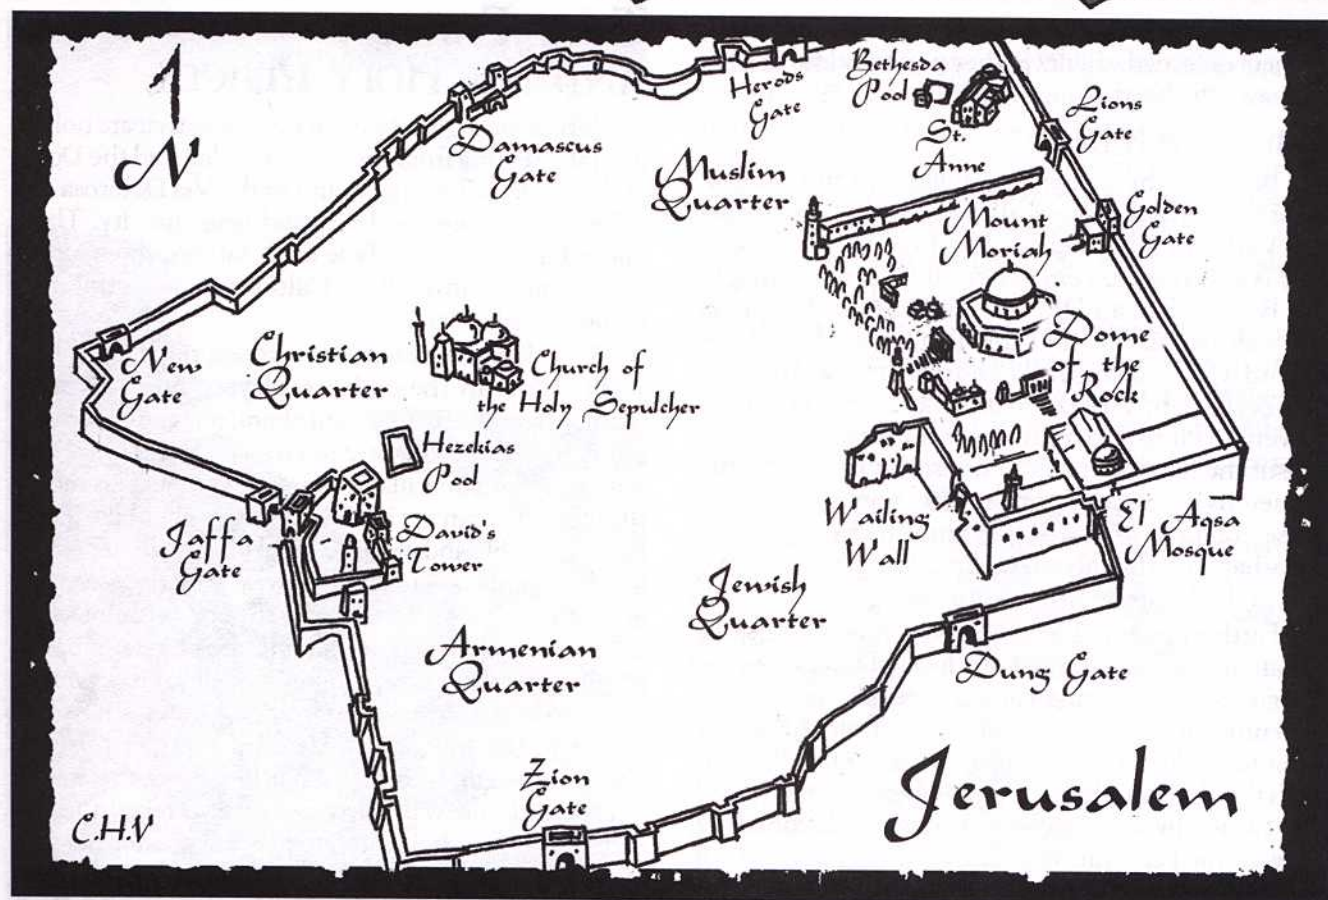 N
Damascus
Gate
Herods
Gate
Bethesda
Pool
St.
Anne
Lions
Gate
Muslim
Quarter
Mount
Moriah
Golden
Gate
New
Gate
Christian
Quarter
Church of
the Holy Sepulcher
Dome
of the
Rock
Hezekias
Pool
Jaffa
Gate
David's
Tower
Wailing
Wall
El Aqsa
Mosque
Jewish
Quarter
Armenian
Quarter
Dung Gate
Zion
Gate
Jerusalem
C.H.V